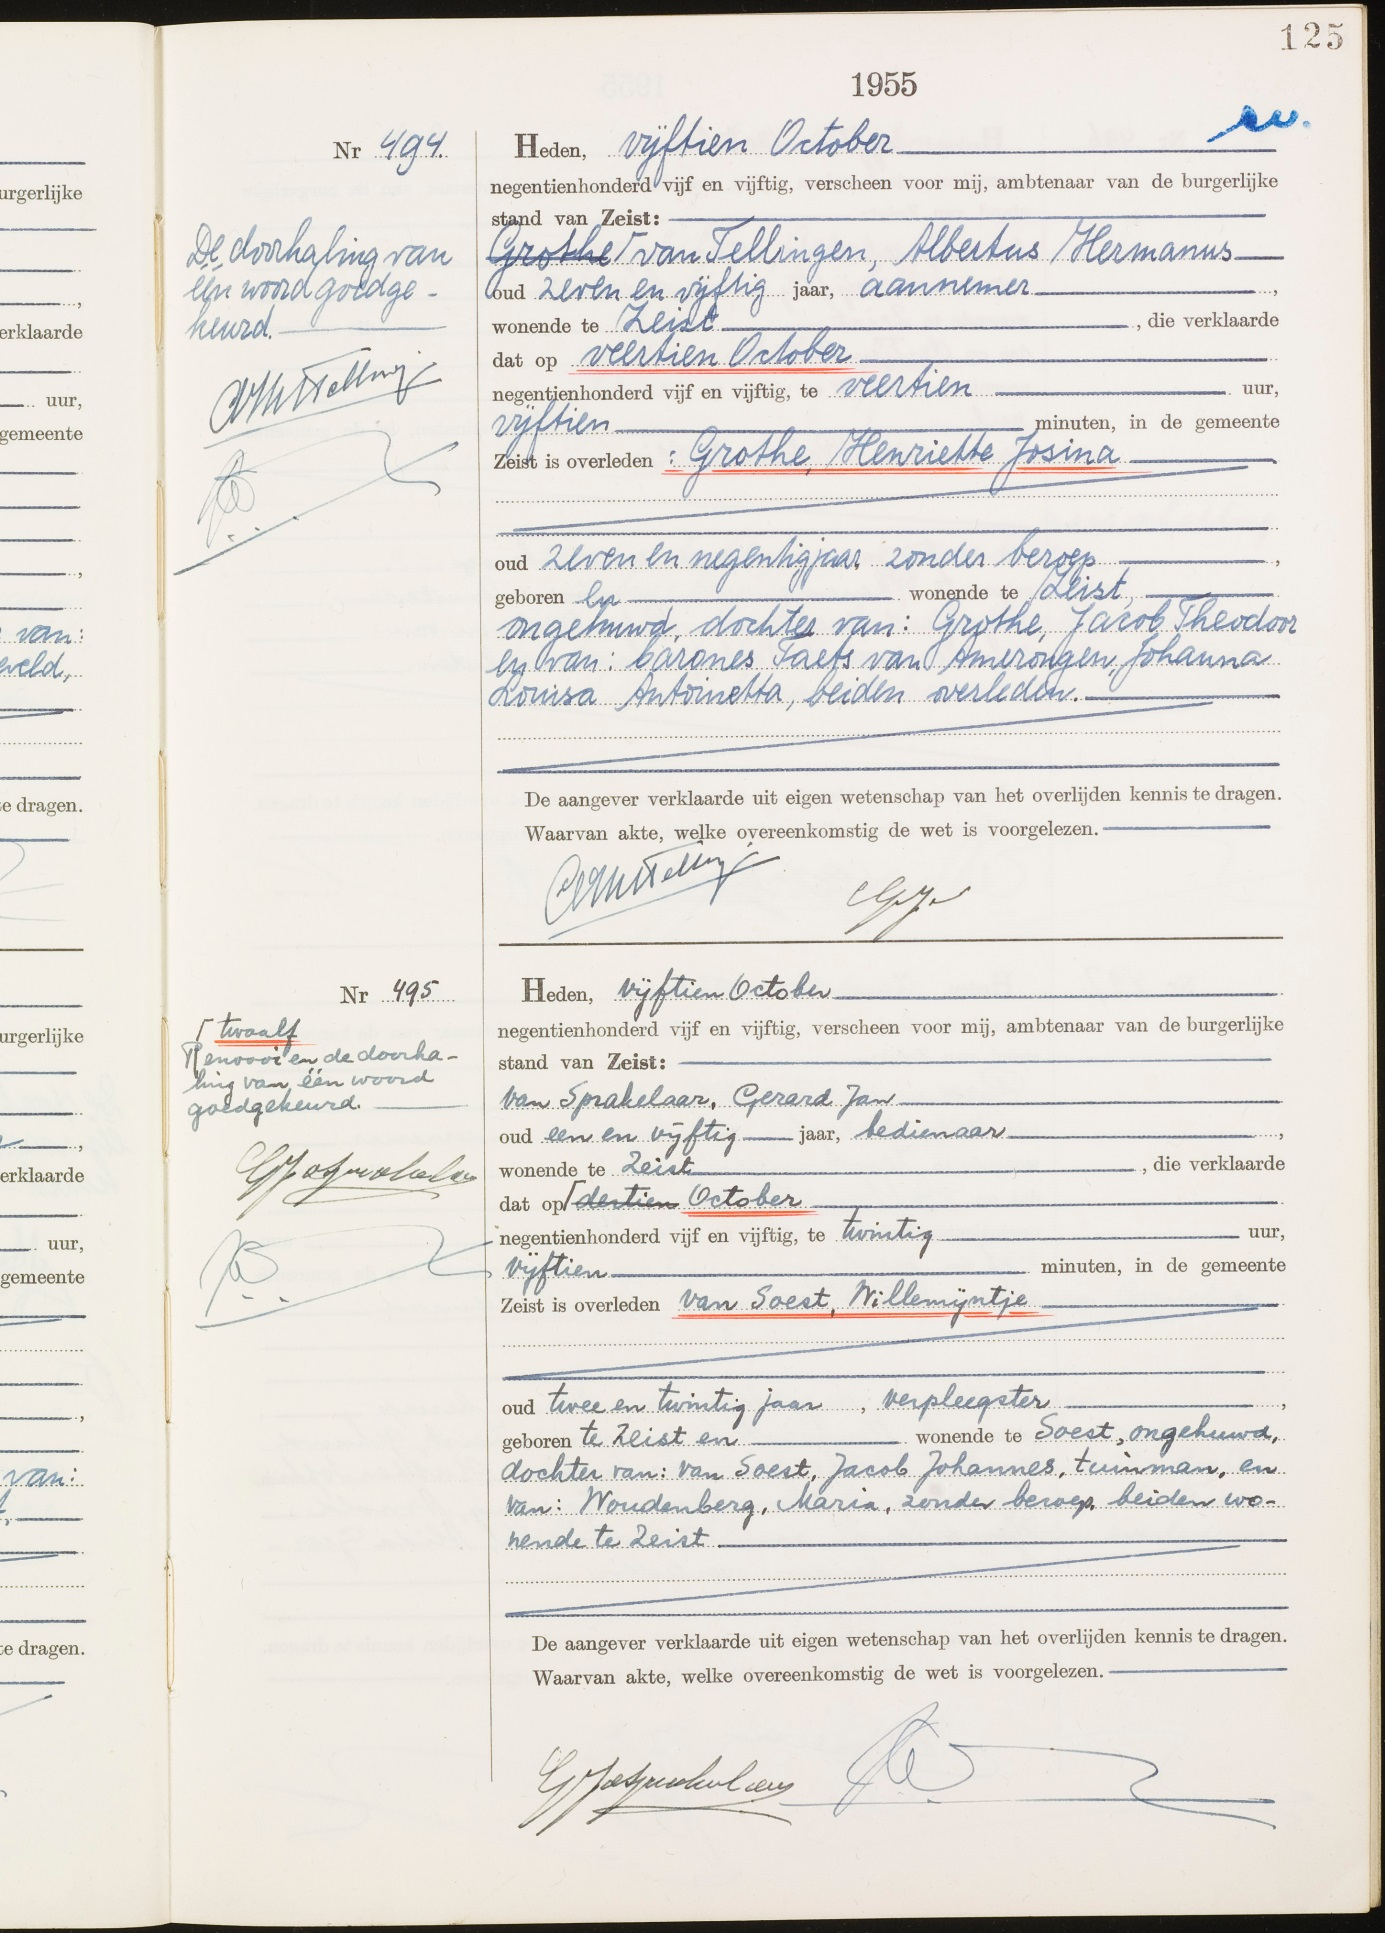 125
1955
ev.
Nr 494.
Heden, vijftien October
negentienhonderd vijf en vijftig, verscheen voor mij, ambtenaar van de burgerlijke
stand van Zeist:
Grothe van Tellingen, Albertus Hermanus
oud zeven en vijftig jaar, aannemer ,
wonende te Zeist , die verklaarde
dat op veertien October
negentienhonderd vijf en vijftig, te veertien uur,
vijftien minuten, in de gemeente
Zeist is overleden : Grothe, Henriette Josina
oud zeven en negentig jaar, zonder beroep ,
geboren en wonende te Zeist,
ongehuwd, dochter van: Grothe, Jacob Theodoor
en van: barones Taets van Amerongen, Johanna
Louisa Antoinetta, beiden overleden.
De aangever verklaarde uit eigen wetenschap van het overlijden kennis te dragen.
Waarvan akte, welke overeenkomstig de wet is voorgelezen.
De doorhaling van
één woord goedge-
keurd.
Nr 495
Heden, vijftien October
negentienhonderd vijf en vijftig, verscheen voor mij, ambtenaar van de burgerlijke
stand van Zeist:
van Sprakelaar, Gerard Jan
oud een en vijftig jaar, bedienaar ,
wonende te Zeist , die verklaarde
dat op dertien October
negentienhonderd vijf en vijftig, te twintig uur,
vijftien minuten, in de gemeente
Zeist is overleden van Soest, Willemijntje
oud twee en twintig jaar , verpleegster ,
geboren te Zeist en wonende te Soest, ongehuwd,
dochter van: van Soest, Jacob Johannes, tuinman, en
van: Woudenberg, Maria, zonder beroep, beiden wo-
nende te Zeist
De aangever verklaarde uit eigen wetenschap van het overlijden kennis te dragen.
Waarvan akte, welke overeenkomstig de wet is voorgelezen.
twaalf
Renvooi en de doorha-
ling van één woord
goedgekeurd.
urgerlijke
,
erklaarde
uur,
gemeente
,
van:
eveld,
te dragen.
urgerlijke
,
erklaarde
uur,
gemeente
,
van:
te dragen.